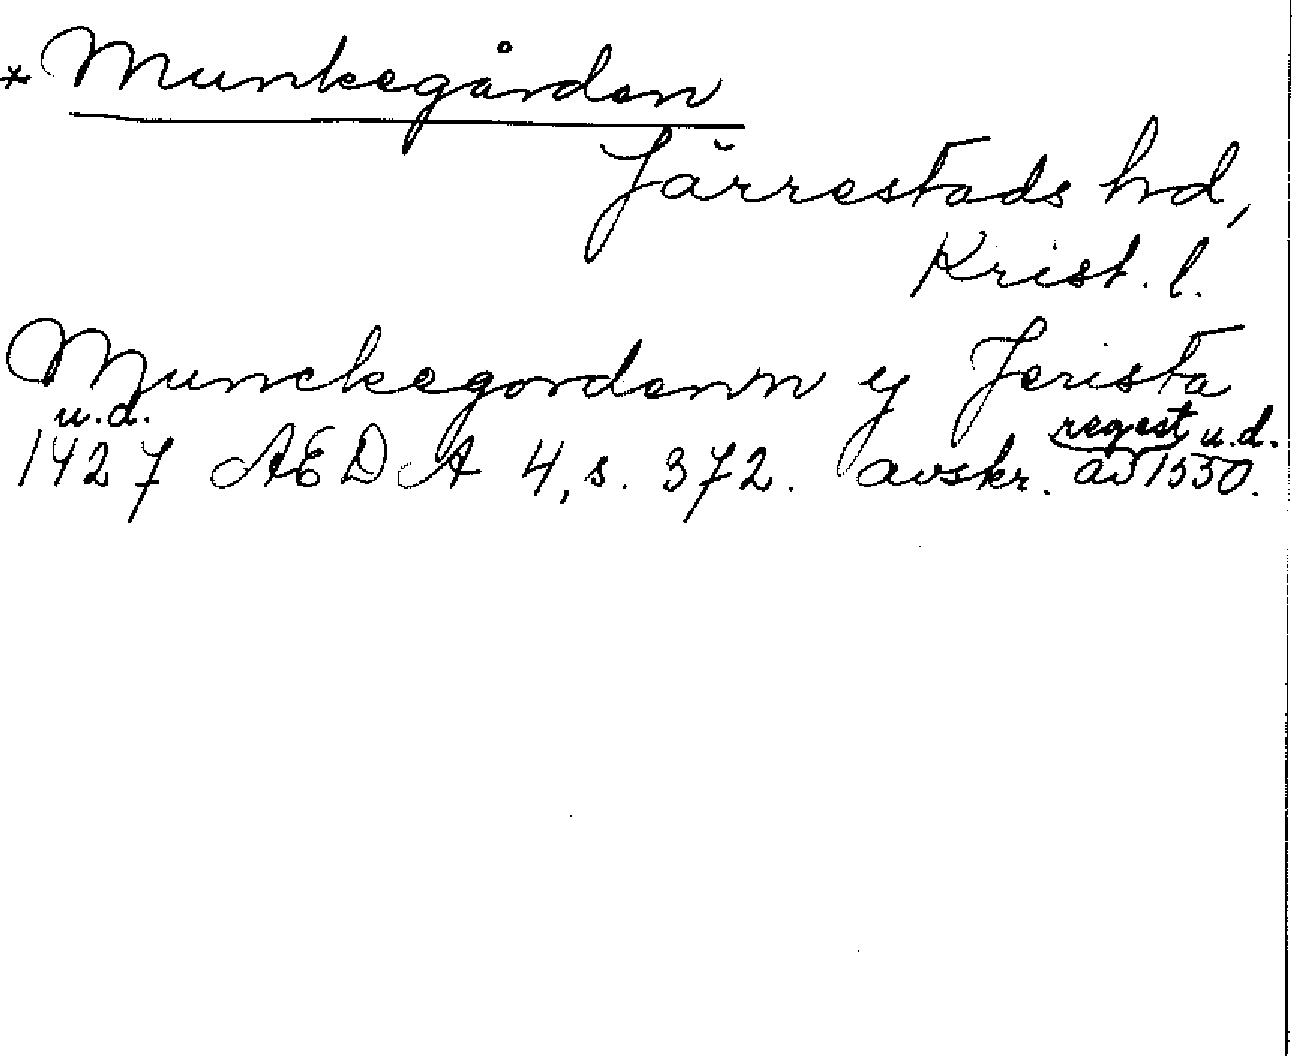 *Munkegården
Järrestads hd,
Krist. l.
Munckegordenn y Jerista
u.d. regest u.d.
1427 AEDA 4, s. 372. avskr. av 1550.